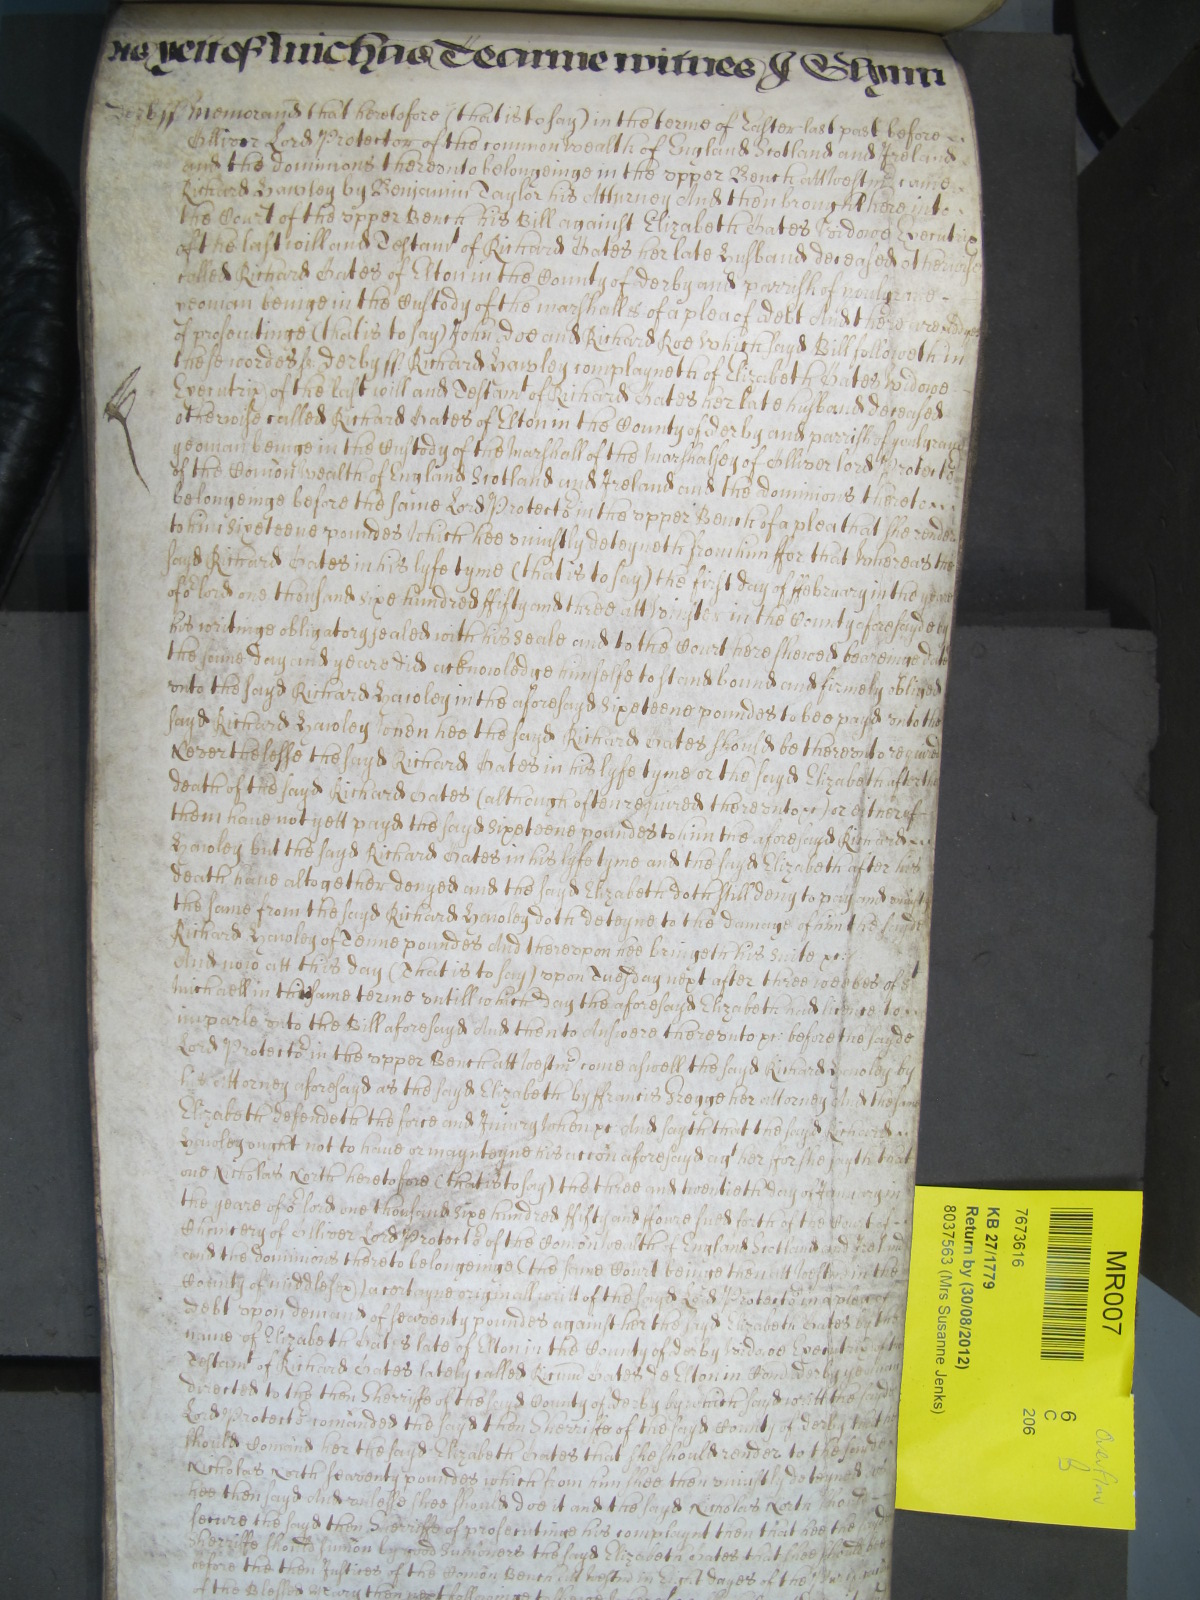 yett of Michas Tearme witnes J Glynn
Derby ss Memorand that heretofore (that is to say) in the terme of Easter last past before
Olliver Lord Protector of the commonwealth of England Scotland and Ireland
and the dominions thereunto belongeinge in the upper Bench att westmr came
Richard Hawley by Benjamin Taylor his Atturney And then brought here into
the Court of the upper Bench his Bill against Elizabeth Gates Widowe Executrix
of the last will and Testamt of Richard Gates her late Husband deceased otherwise
called Richard Gates of Elton in the County of derby and parrish of youlgrave
yeoman beinge in the Custody of the marshall &c of a plea of debt And there are pledges
of prosecutinge (that is to say) John Doe and Richard Roe Which sayd Bill followeth in
these wordes ss derby ss Richard Hawley complayneth of Elizabeth Gates Widowe
Executrix of the last will and Testamt of Richard Gates her late husband deceased
otherwise called Richard Gates of Elton in the County of derby and parrish of youlgrave
yeoman beinge in the Custody of the Marshall of the Marshalsey of Olliver lord Protector
of the Comon wealth of England Scotland and Ireland and the dominions thereto
belongeinge before the same Lord Protector in the upper Bench of a plea that she render
to him Sixeteene poundes Which hee uniustly deteyneth from him ffor that Whereas the
sayd Richard Gates in his lyfe tyme (that is to say) the first day of ffebruary in the yeare
of or lord one thousand sixe hundred ffifty and three att in the County aforesayd by
his writinge obligatory sealed with his seale and to the Court here shewed beareinge date
the same day and yeare did acknowledge himselfe to stand bound and firmely obliged
unto the sayd Richard Hawley in the aforesayd Sixeteene poundes to bee payd unto the
sayd Richard Hawley When hee the sayd Richard Gates should be thereunto required
Neverthelesse the sayd Richard Gates in his lyfe tyme or the sayd Elizabeth after the
death of the sayd Richard Gates (although often required thereunto &c) or either of
them have not yett payd the sayd Sixeteene poundes to him the aforesayd Richard
Hawley but the sayd Richard Gates in his lyfe tyme and the sayd Elizabeth after his
death have altogether denyed and the sayd Elizabeth doth still deny to pay and uniustly
the same from the sayd Richard Hawley doth deteyne to the damage of him the sayd
Richard Hawley of Tenne poundes And thereupon hee bringeth his suite &c
And now att this day (That is to say) upon Tuesday next after three weekes of St
Michaell in this same terme untill which day the aforesayd Elizabeth had licence to
imparle unto the Bill aforesayd And then to Answere thereunto &c before the sayde
Lord Protector in the upper Bench att westmr come aswell the sayd Richard Hawley by
his Attorney aforesayd as the sayd Elizabeth by ffrancis Gregge her attorney And the same
Elizabeth defendeth the force and Iniury When &c And sayth that the sayd Richard
Hawley ought not to have or maynteyne his accon aforesayd agt her for she sayth that
one Nicholas North heretofore (that is to say) the three and twentieth day of January in
the yeare of or lord one thousand sixe hundred ffifty and ffoure sued forth of the Court of
Chancery of Olliver Lord Protector of the Comon wealth of England Scotland and Ireland
and the dominions thereto belongeinge (the same Court beinge then att westmr in the
County of middlesex) a certayne originall writt of the sayd Lord Protector in a plea of
debt upon demand of seaventy poundes against her the sayd Elizabeth Gates by the
name of Elizabeth Gates late of Elton in the County of derby widowe Executrix of the
Testamt of Richard Gates lately called Richard Gates de Elton in Com derby yeoman
directed to the then Sherriffe of the sayd County of derby by which sayd writt the sayd
Lord Protector comanded the sayd then Sherriffe of the sayd County of derby that hee
should Comand her the sayd Elizabeth Gates that she should render to the sayd
Nicholas North seaventy poundes which from him shee then uniustly deteyned as
hee then sayd And unlesse shee should doe it and the sayd Nicholas North should
secure the sayd then Sherriffe of prosecutinge his complaynt then that hee the sayd
Sherriffe should sumon by good sumoners the sayd Elizabeth Gates that shee should bee
before the then Justices of the Comon Bench att westmr in eight dayes of the
of the Blessed Mary then next followinge
MR007
7673616
KB 27/1779
Return by (30/08/2012)
8037563 (Mrs Susanne Jenks)
6
C
206
Overflow
B